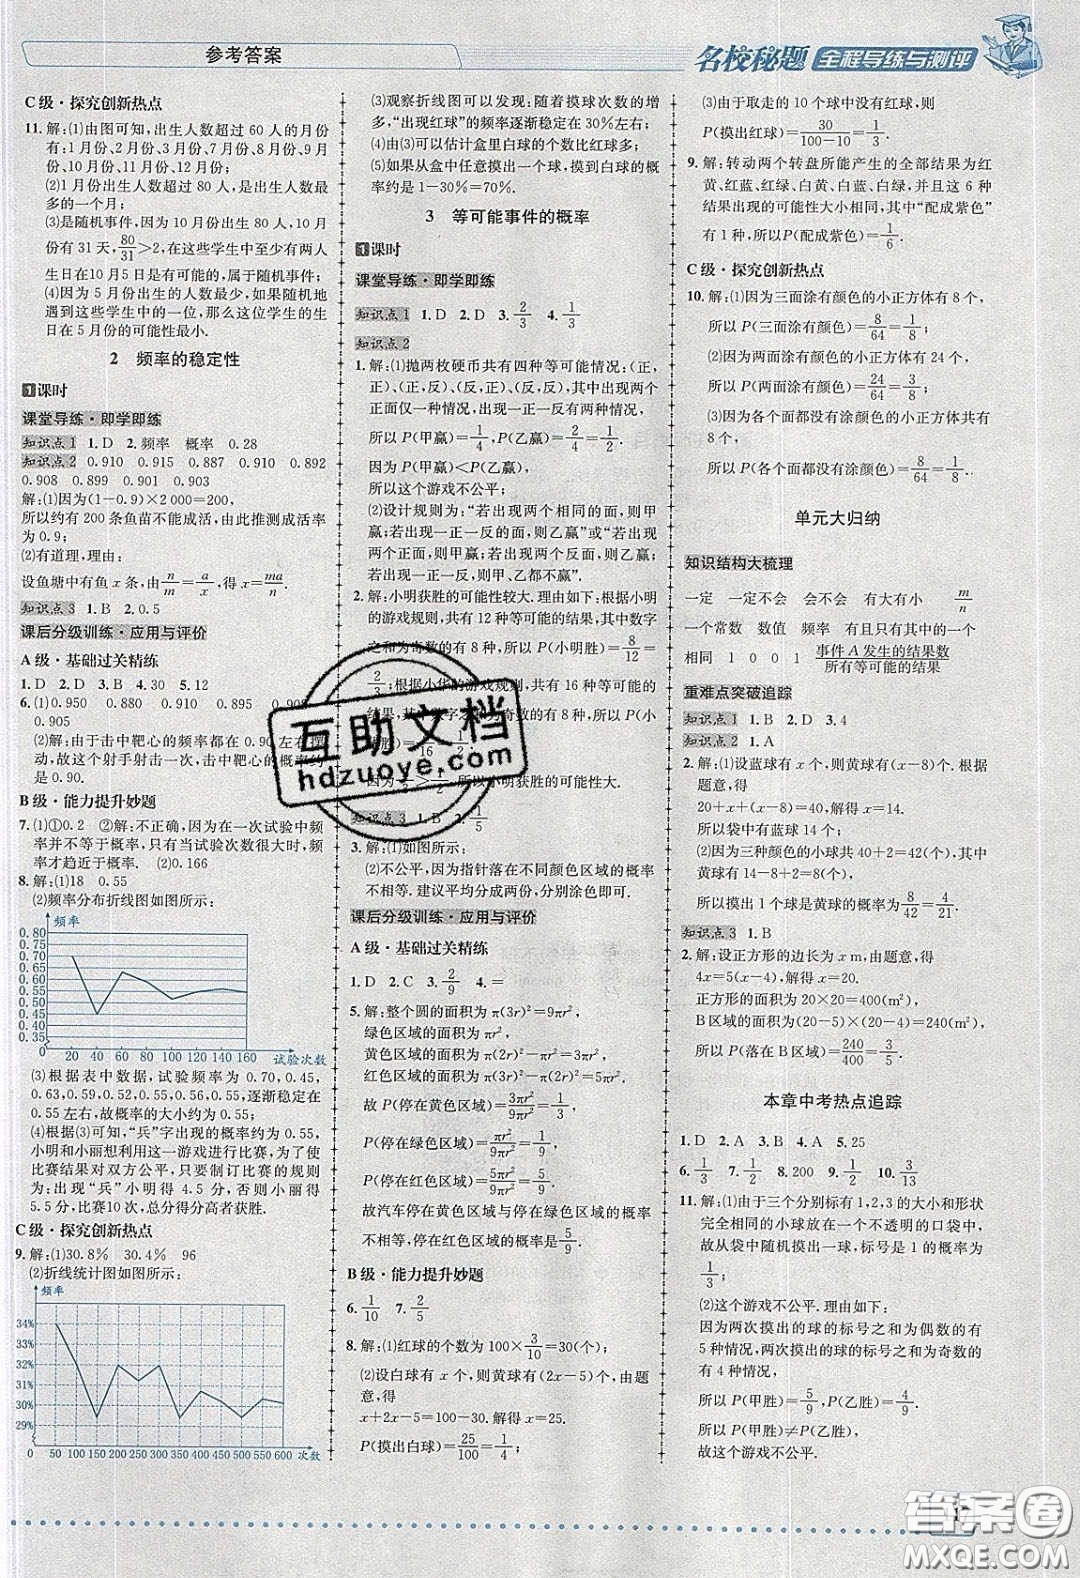 参考答案
名校秘题 全程导练与测评
C级·探究创新热点
11. 解:(1)由图可知,出生人数超过 60 人的月份
有:1月份、2月份、3月份、7月份、8月份、9月份、
10月份、11月份、12月份;
(2)1月份出生人数超过 80 人,是出生人数最
多的一个月;
(3)是随机事件,因为 10 月份出生 80 人,且 10 月
份有 31 天,80/31>2,在这些学生中至少有两人
生日在10月5日是有可能的,属于随机事件;
(4)因为 5 月份出生的人数最少,如果随机地遇
到这些学生中的一位,那么这位学生的生
日在 5 月份的可能性最小.
2 频率的稳定性
1课时
课堂导练·即学即练
知识点1 1. D 2. 频率 概率 0.28
知识点2 0.910 0.915 0.887 0.910 0.892
0.908 0.899 0.902
解:(1)因为(1-0.9)×2 000=200,
所以约有 200 条鱼苗不能成活,由此推测成活率
为 0.9;
(2)有道理,理由:
设鱼塘中有鱼 x 条,由 n/m=a/x,得 x=ma/n.
知识点3 1. B 2. 0.5
课后分级训练·应用与评价
A级·基础过关精练
1. D 2. D 3. B 4. 30 5. 12
6. (1)0.950 0.880 0.910 0.895 0.906
0.905
(2)解:由于击中靶心的频率都在 0.90 左右摆
动,故这个射手射击一次,击中靶心的概率约
是 0.90.
B级·能力提升妙题
7. (1)①0.2 ②解:不正确,因为在一次试验中频
率并不等于概率,只有当试验次数很大时,频
率才趋近于概率. (2)0.166
8. 解:(1)18 0.55
(2)频率分布折线图如图所示:
频率
0.80
0.75
0.70
0.65
0.60
0.55
0.50
0.45
0.40
0.35
0 20 40 60 80 100 120 140 160 试验次数
(3)根据表中数据,试验频率为 0.70,0.45,
0.63,0.59,0.52,0.55,0.56,0.55,逐渐稳定在
0.55 左右,故概率的大小约为 0.55.
(4)根据(3)可知,“兵”字出现的概率约为 0.55,
小明和小丽想利用这一游戏进行比赛,为了使
比赛结果对双方公平,只要制订比赛的规则
为:出现“兵”小明得 4.5 分,否则小丽得
5.5 分,比赛10 次,总得分高者获胜.
C级·探究创新热点
9. 解:(1)30.8% 30.4% 96
(2)折线统计图如图所示:
频率
34%
33%
32%
31%
30%
29%
0 50 100 150 200 250 300 350 400 450 500 550 600 次数
(3)观察折线图可以发现:随着摸球次数的增
多,“出现红球”的频率逐渐稳定在 30%左右;
(4)由(3)可以估计盒里白球的个数比红球多;
(5)如果从盒中任意摸出一个球,摸到白球的概
率约是 1-30%=70%.
3 等可能事件的概率
1课时
课堂导练·即学即练
知识点1 1. D 2. D 3. 2/3 4. 1/3
知识点2
1. 解:(1)抛两枚硬币共有四种等可能情况:(正,
正)、(正,反)、(反,正)、(反,反),其中出现两个
正面仅一种情况,出现一正一反有两种情况,
所以 P(甲赢)=1/4,P(乙赢)=2/4=1/2.
因为 P(甲赢)<P(乙赢).
所以这个游戏不公平;
(2)设计规则为:“若出现两个相同的面,则甲
赢;若出现一正一反的面,则乙赢”或“若出现
正正,则甲赢;若出现两个反面,则乙赢;若出
现一正一反,则甲、乙都不赢”.
2. 解:小明获胜的可能性较大. 理由如下:根据小明
的游戏规则,共有 12 种等可能的结果,其中数字
之和为奇数的有 8 种,所以 P(小明胜)=8/12=
2/3;根据小华的游戏规则,共有 16 种等可能的
结果,其中数字之和为奇数的有 8 种,所以 P(小
所以小明获胜的可能性大.
知识点3 1. B 2. 1/5
3. 解:(1)如图所示:
(2)不公平,因为指针落在不同颜色区域的概率
不相等. 建议平均分成两份,分别涂色即可.
课后分级训练·应用与评价
A级·基础过关精练
1. D 2. C 3. 2/9 4. =
5. 解:整个圆的面积为 π(3r)²=9πr²,
绿色区域的面积为 πr²,
黄色区域的面积为 π(2r)²-πr²=3πr²,
红色区域的面积为 π(3r)²-π(2r)²=5πr².
故 P(停在黄色区域)=3πr²/9πr²=1/3,
P(停在绿色区域)=πr²/9πr²=1/9,
P(停在红色区域)=5πr²/9πr²=5/9.
故汽车停在黄色区域与停在绿色区域的概率
不相等,停在红色区域的概率是 5/9.
B级·能力提升妙题
6. 1/10 7. 2/5
8. 解:(1)红球的个数为 100×3/10=30(个);
(2)设白球有 x 个,则黄球有(2x-5)个,根据题
意,得
x+2x-5=100-30. 解得 x=25.
P(摸出白球)=25/100=1/4;
(3)由于取走的 10 个球中没有红球,则
P(摸出红球)=30/(100-10)=1/3.
9. 解:转动两个转盘所能产生的全部结果为红
黄、红蓝、红绿、白黄、白蓝、白绿,并且这 6 种
结果出现的可能性大小相同,其中“配成紫色”
有 1 种,所以 P(配成紫色)=1/6.
C级·探究创新热点
10. 解:(1)因为三面涂有颜色的小正方体有 8 个,
所以 P(三面涂有颜色)=8/64=1/8;
(2)因为两面涂有颜色的小正方体有 24 个,
所以 P(两面涂有颜色)=24/64=3/8;
(3)因为各个面都没有涂颜色的小正方体共有
8 个,
所以 P(各个面都没有涂颜色)=8/64=1/8.
单元大归纳
知识结构大梳理
一定 一定不会 会不会 有大有小 m/n
一个常数 数值 频率 有以下有限个
相同 1 0 0 1 事件 A 发生的结果数/所有等可能的结果
重难点突破追踪
知识点1 1. B 2. D 3. 4
知识点2 1. A
2. 解:(1)设蓝球有 x 个,则黄球有(x-8)个,根据
题意,得
20+x+(x-8)=40,解得 x=14.
所以袋中有蓝球 14 个;
(2)因为三种颜色的小球共 40+2=42(个),其中
黄球有 14-8+2=8(个),
所以摸出 1 个球是黄球的概率为 8/42=4/21.
知识点3 1. B
2. 解:设正方形的边长为 x m,由题意,得
4x=5(x-4),解得 x=20.
正方形的面积为 20×20=400(m²),
B区域的面积为(20-5)×(20-4)=240(m²).
所以 P(落在 B 区域)=240/400=3/5.
本章中考热点追踪
1. D 2. A 3. B 4. A 5. 25
6. 1/3 7. 1/2 8. 200 9. 1/2 10. 3/13
11. 解:(1)由于三个分别标有 1,2,3 的大小和形状
完全相同的小球放在一个不透明的口袋中,
故从袋中随机摸出一球,标号是 1 的概率为
1/3;
(2)这个游戏不公平. 理由如下:
因为两次摸出的球的标号之和为偶数的有
5 种情况,两次摸出的球的标号之和为奇数的
有 4 种情况,
所以 P(甲胜)=5/9,P(乙胜)=4/9.
所以 P(甲胜)≠P(乙胜).
故这个游戏不公平.
互助文档
hdzuoye.com
答案圈
MXQE.COM